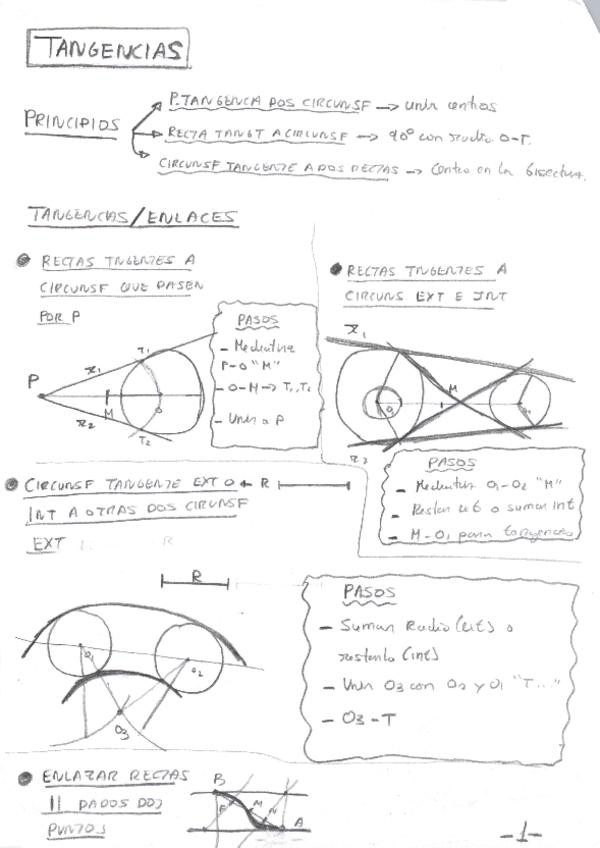 TANGENCIAS
PRINCIPIOS
P. TANGENCIA DOS CIRCUNSF → unir centros
RECTA TANGT A CIRCUNSF → 90° con radio O-T.
CIRCUNSF TANGENTE A DOS RECTAS → Centro en la bisectriz.
TANGENCIAS/ENLACES
RECTAS TNGENTES A
CIRCUNSF QUE PASEN
POR P
PASOS
- Mediatriz
P-O "M"
- O-M → T1, T2
- Unir a P
P
r1
T1
M
O
r2
T2
RECTAS TNGENTES A
CIRCUNS EXT E INT
r1
M
O1
O2
r2
PASOS
- Mediatriz O1-O2 "M"
- Restar ext o sumar int
- M-O1 para tangencias
CIRCUNSF TANGENTE EXT O ← R
INT A OTRAS DOS CIRUNSF
EXT
R
R
O1
O2
O3
PASOS
- Sumar Radio (ext) o
restarlo (int)
- Unir O3 con O2 y O1 "T..."
- O3-T
ENLAZAR RECTAS
|| DADOS DOS
PUNTOS
B
M
N
A
-1-